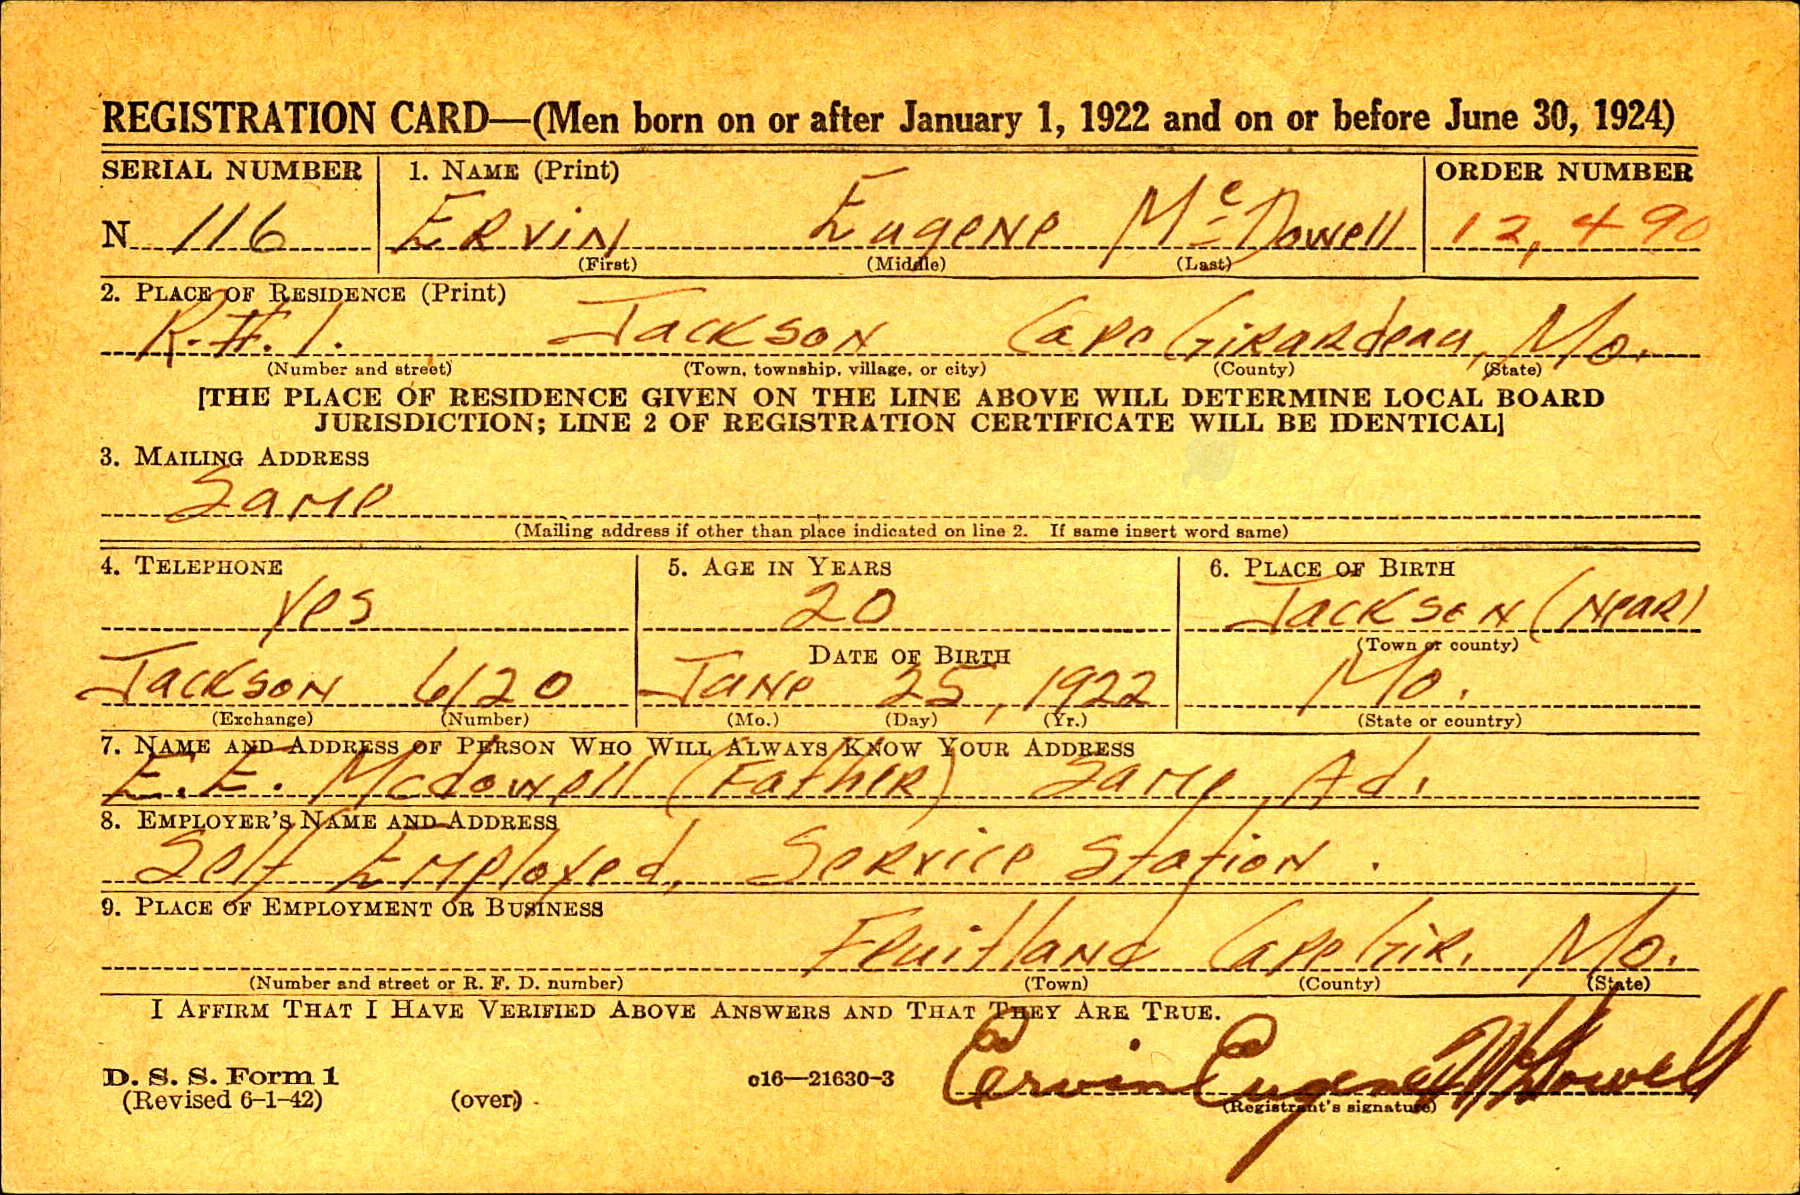 REGISTRATION CARD—(Men born on or after January 1, 1922 and on or before June 30, 1924)
SERIAL NUMBER 1. NAME (Print) ORDER NUMBER
N 116 Ervin Eugene McDowell 12,490
(First) (Middle) (Last)
2. PLACE OF RESIDENCE (Print)
R.#.1. Jackson Cape Girardeau, Mo.
(Number and street) (Town, township, village, or city) (County) (State)
[THE PLACE OF RESIDENCE GIVEN ON THE LINE ABOVE WILL DETERMINE LOCAL BOARD
JURISDICTION; LINE 2 OF REGISTRATION CERTIFICATE WILL BE IDENTICAL]
3. MAILING ADDRESS
Same
(Mailing address if other than place indicated on line 2. If same insert word same)
4. TELEPHONE 5. AGE IN YEARS 6. PLACE OF BIRTH
Yes 20 Jackson (Near)
(Town or county)
DATE OF BIRTH
Jackson 6120 June 25, 1922 Mo.
(Exchange) (Number) (Mo.) (Day) (Yr.) (State or country)
7. NAME AND ADDRESS OF PERSON WHO WILL ALWAYS KNOW YOUR ADDRESS
E. E. Mcdowell (Father) Same Ad.
8. EMPLOYER'S NAME AND ADDRESS
Self Employed, Service Station.
9. PLACE OF EMPLOYMENT OR BUSINESS
Fruitland Cape Gir. Mo.
(Number and street or R. F. D. number) (Town) (County) (State)
I AFFIRM THAT I HAVE VERIFIED ABOVE ANSWERS AND THAT THEY ARE TRUE.
D. S. S. Form 1 c16—21630-3 Ervin Eugene McDowell
(Revised 6-1-42) (over) (Registrant's signature)